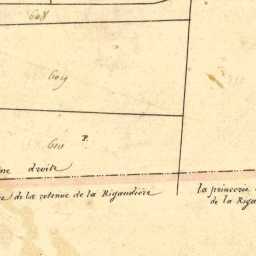 608
609
610
P.
droite
de la retenue de la Rigaudière
la princerie
de la Riga